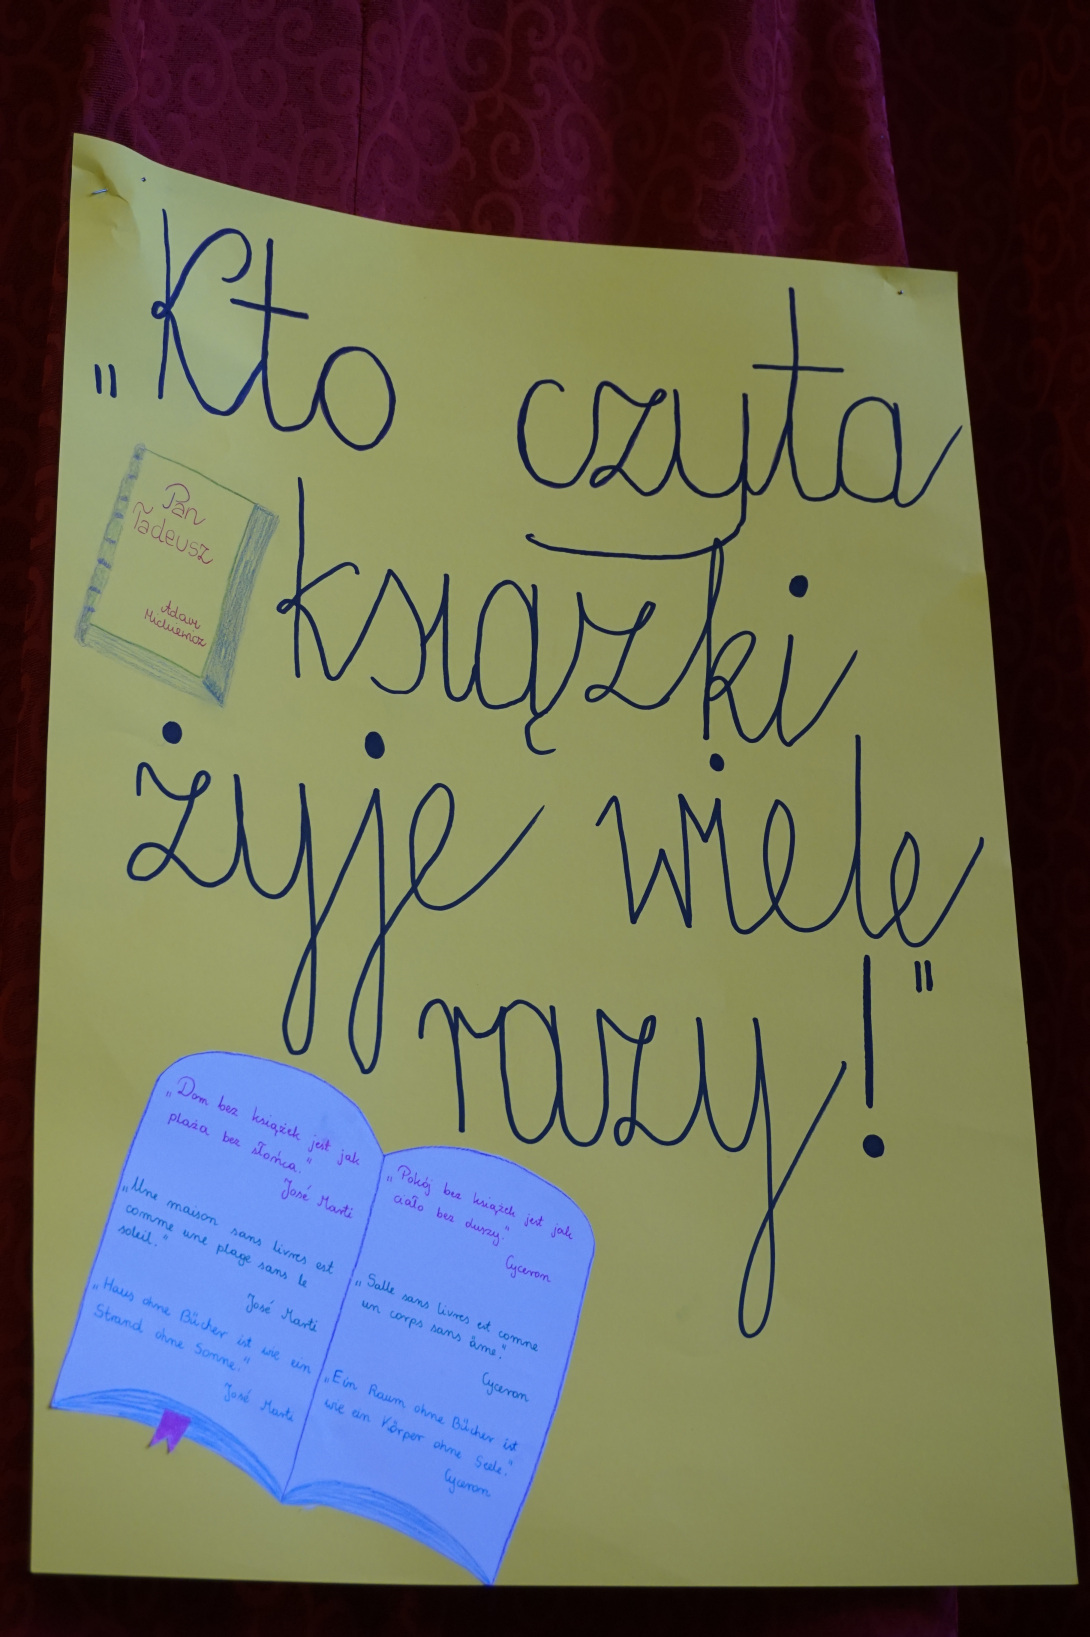 „Kto czyta
książki
żyje wiele
razy!"
Pan
Tadeusz
Adam
Mickiewicz
„Dom bez książek jest jak
plaża bez słońca."
José Marti
„Une maison sans livres est
comme une plage sans le
soleil."
José Marti
„Haus ohne Bücher ist wie ein
Strand ohne Sonne."
José Marti
„Pokój bez książek jest jak
ciało bez duszy."
Cyceron
„Salle sans livres est comme
un corps sans âme."
Cyceron
„Ein Raum ohne Bücher ist
wie ein Körper ohne Seele."
Cyceron